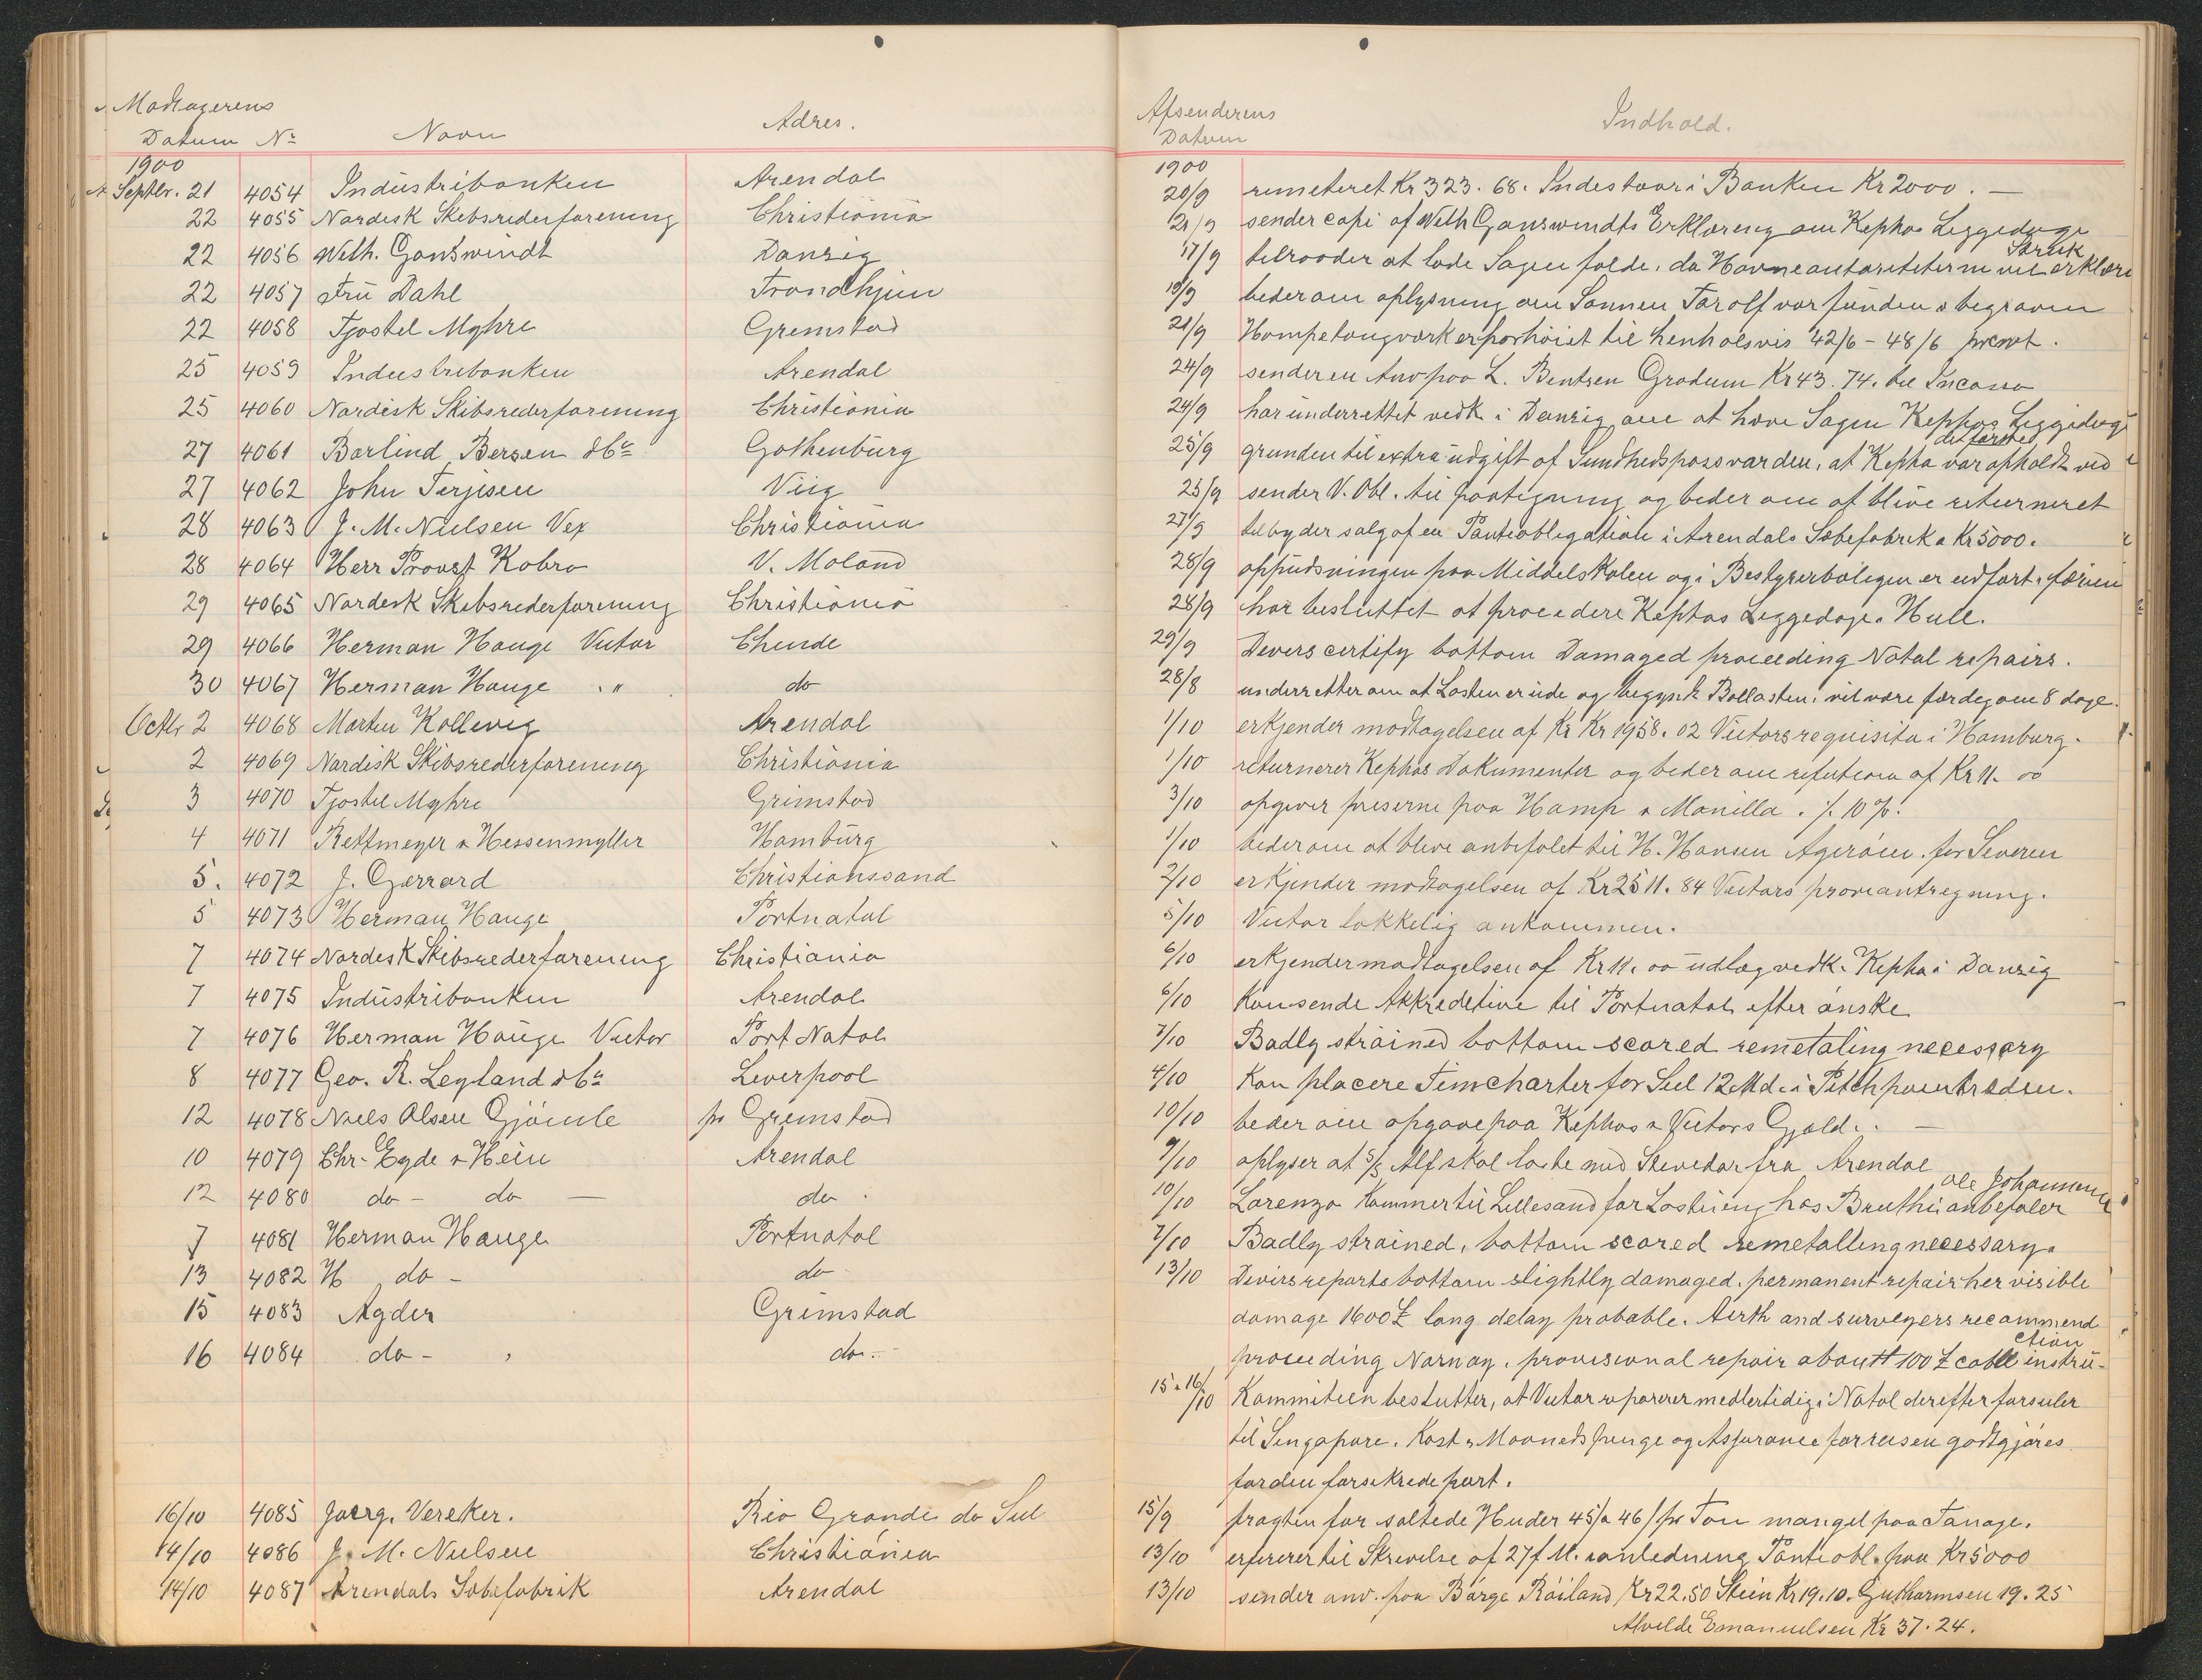 Modtagerens
Datum No Navn Adres.
1900
Septbr. 21 4054 Industribanken Arendal
22 4055 Nordisk Skibsrederforening Christiania
22 4056 Wilh. Ganswindt Danzig
22 4057 Fru Dahl Trondhjem
22 4058 Tjostel Myhre Grimstad
25 4059 Industribanken Arendal
25 4060 Nordisk Skibsrederforening Christiania
27 4061 Barlind Bersen & Co Gothenburg
27 4062 John Terjesen Viig
28 4063 J. M. Nielsen Vex Christiania
28 4064 Herr Provst Kobro V. Moland
29 4065 Nordisk Skibsrederforening Christiania
29 4066 Herman Hauge Victor Chinde
30 4067 Herman Hauge " do
Octbr 2 4068 Morten Kallevig Arendal
2 4069 Nordisk Skibsrederforening Christiania
3 4070 Tjostel Myhre Grimstad
4 4071 Rettmeyer & Hessenmyller Hamburg
5. 4072 J. Gerrard Christianssand
5 4073 Herman Hauge Portnatal
7 4074 Nordisk Skibsrederforening Christiania
7 4075 Industribanken Arendal
7 4076 Herman Hauge Victor Port Natal
8 4077 Geo. R. Leyland & Co Liverpool
12 4078 Niels Olsen Gjömle pr Grimstad
10 4079 Chr. Eyde & Hein Arendal
12 4080 do - do — do
7 4081 Herman Hauge Portnatal
13 4082 H do - do
15 4083 Agder Grimstad
16 4084 do - do
16/10 4085 Joerg. Vereker. Rio Grande do Sul
14/10 4086 J. M. Nielsen Christiania
14/10 4087 Arendals Sæbefabrik Arendal
Afsenderens
Datum Indhold.
1900
20/9 remeteret Kr 323. 68. Indestaar i Banken Kr 2000. —
21/9 sender copi af Wilh Ganswindts Erklæring om Kephas Liggedage
17/9 tilraader at lade Sagen falde, da Havneautoriteterne vil erklære Strik
18/9 beder om oplysning om Sønnen Tarolf var funden & begraven
21/9 Hampetougværk er forhøiet til henholsvis 42/6 - 48/6 prcwt.
24/9 sender en Anv paa L. Bentsen Grödum Kr 43. 74. til Incasso
24/9 har underrettet vedk i Danzig om at hæve Sagen Kephas Liggedage
25/9 grunden til extra udgift af Sundhedspass var den, at Kepha var opholdt ved det første
25/9 sender V. Obl. til paategning og beder om at blive returneret
27/9 tilbyder salg af en Panteobligation i Arendals Sæbefabrik a Kr 5000.
28/9 oppudsningen paa Middelskolen og i Bestyrerboligen er udført i færien
28/9 har besluttet at procedere Kephas Liggedage. Hull.
29/9 Divers certify bottom Damaged proceeding Natal repairs.
28/8 underretter om at Lasten er ude og begynt Ballasten, vil være færdig om 8 dage.
1/10 erkjender modtagelsen af Kr Kr 1958. 02 Victors requisita i Hamburg.
1/10 returnerer Kephas Dokumenter og beder om refution af Kr 11. 00
3/10 opgiver priserne paa Hamp & Manilla. ./. 10 %.
1/10 beder om at blive anbefalet til H. Hansen Agerøen. for Severen
2/10 erkjender modtagelsen af Kr 2511. 84 Victors proviantregning.
5/10 Victor lykkelig ankommen.
6/10 erkjender modtagelsen af Kr 11. 00 udlæg vedk. Kepha i Danzig
6/10 Kan sende Akkreditive til Portnatal efter ønske
7/10 Badly strained bottom scored remetaling necessary
4/10 Kan placere Timecharter for Sul 12 Md. i Pitchpinetraden.
10/10 beder om opgave paa Kephas & Victors Gjæld. —
9/10 oplyser at S/S Alf skal laste med Stevedor fra Arendal
10/10 Lorenzo Kommer til Lillesand for Lastning hos Bruthu anbefaler Ole Johannesen
7/10 Badly strained, bottom scored remetalling necessary.
13/10 Divirs reports bottom slightly damaged. permanent repair her visible
damage 1600 £ long delay probable. Airth and surveyers recommend
proceeding Norway, provisional repair about 100 £ cable instruction
15 & 16/10 Kommiteen beslutter, at Victor reparerer medlertidig i Natal derefter forseiler
til Singapore. Kost & Maaneds penge og Assurance for reisen godtgjøres
for den forsikrede part.
15/9 fragten for saltede Huder 45/ a 46/ pr Ton mangel paa Tonage.
13/10 refererer til Skrivelse af 27 f. M. i anledning Panteobl. paa Kr 5000
13/10 sender anv. paa Børge Röiland Kr 22.50 Stein Kr 19.10. Guthormsen 19. 25
Alvilde Emanuelsen Kr 37. 24.